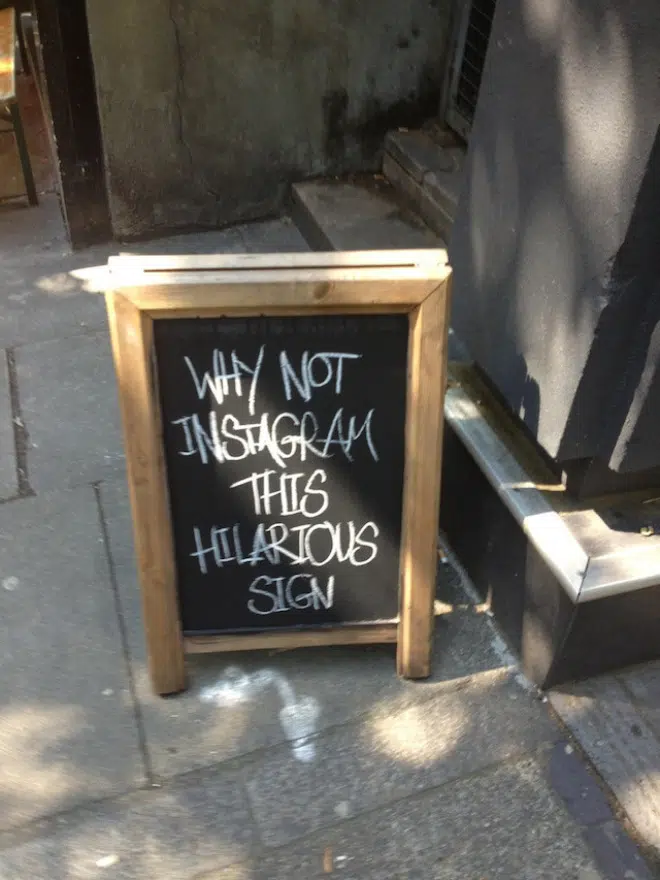 WHY NOT
INSTAGRAM
THIS
HILARIOUS
SIGN